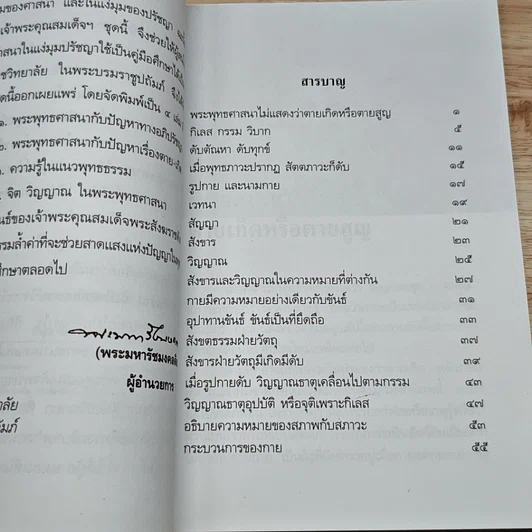 มของศาสนา และในแง่มุมของปรัชญา
เจ้าพระคุณสมเด็จฯ ชุดนี้ จึงช่วยให้
าสนาในแง่มุมปรัชญาใช้เป็นคู่มือศึกษาได้
ชวิทยาลัย ในพระบรมราชูปถัมภ์
ดนี้ออกเผยแพร่ โดยจัดพิมพ์เป็น ๔
๑. พระพุทธศาสนากับปัญหาทางอภิปรัชญา
๒. พระพุทธศาสนากับปัญหาเรื่องตาย
. ความรู้ในแนวพุทธธรรม
. จิต วิญญาณ ในพระพุทธศาสนา
นธ์ของเจ้าพระคุณสมเด็จพระสังฆราช
รรมล้ำค่าที่จะช่วยสาดแสงแห่งปัญญา
ศึกษาตลอดไป
(พระมหารัชมงคล
ผู้อำนวยการ
าลัย
ัมภ์
สารบาญ
พระพุทธศาสนาไม่แสดงว่าตายเกิดหรือตายสูญ ๑
กิเลส กรรม วิบาก ๕
ดับตัณหา ดับทุกข์ ๑๑
เมื่อพุทธภาวะปรากฏ สัตตภาวะก็ดับ ๑๕
รูปกาย และนามกาย ๑๗
เวทนา ๑๙
สัญญา ๒๑
สังขาร ๒๓
วิญญาณ ๒๕
สังขารและวิญญาณในความหมายที่ต่างกัน ๒๗
กายมีความหมายอย่างเดียวกับขันธ์ ๓๑
อุปาทานขันธ์ ขันธ์เป็นที่ยึดถือ ๓๓
สังขตธรรมฝ่ายวัตถุ ๓๗
สังขารฝ่ายวัตถุมีเกิดมีดับ ๓๙
เมื่อรูปกายดับ วิญญาณธาตุเคลื่อนไปตามกรรม ๔๓
วิญญาณธาตุอุปบัติ หรือจุติเพราะกิเลส ๔๗
อธิบายความหมายของสภาพกับสภาวะ ๕๓
กระบวนการของกาย ๕๕